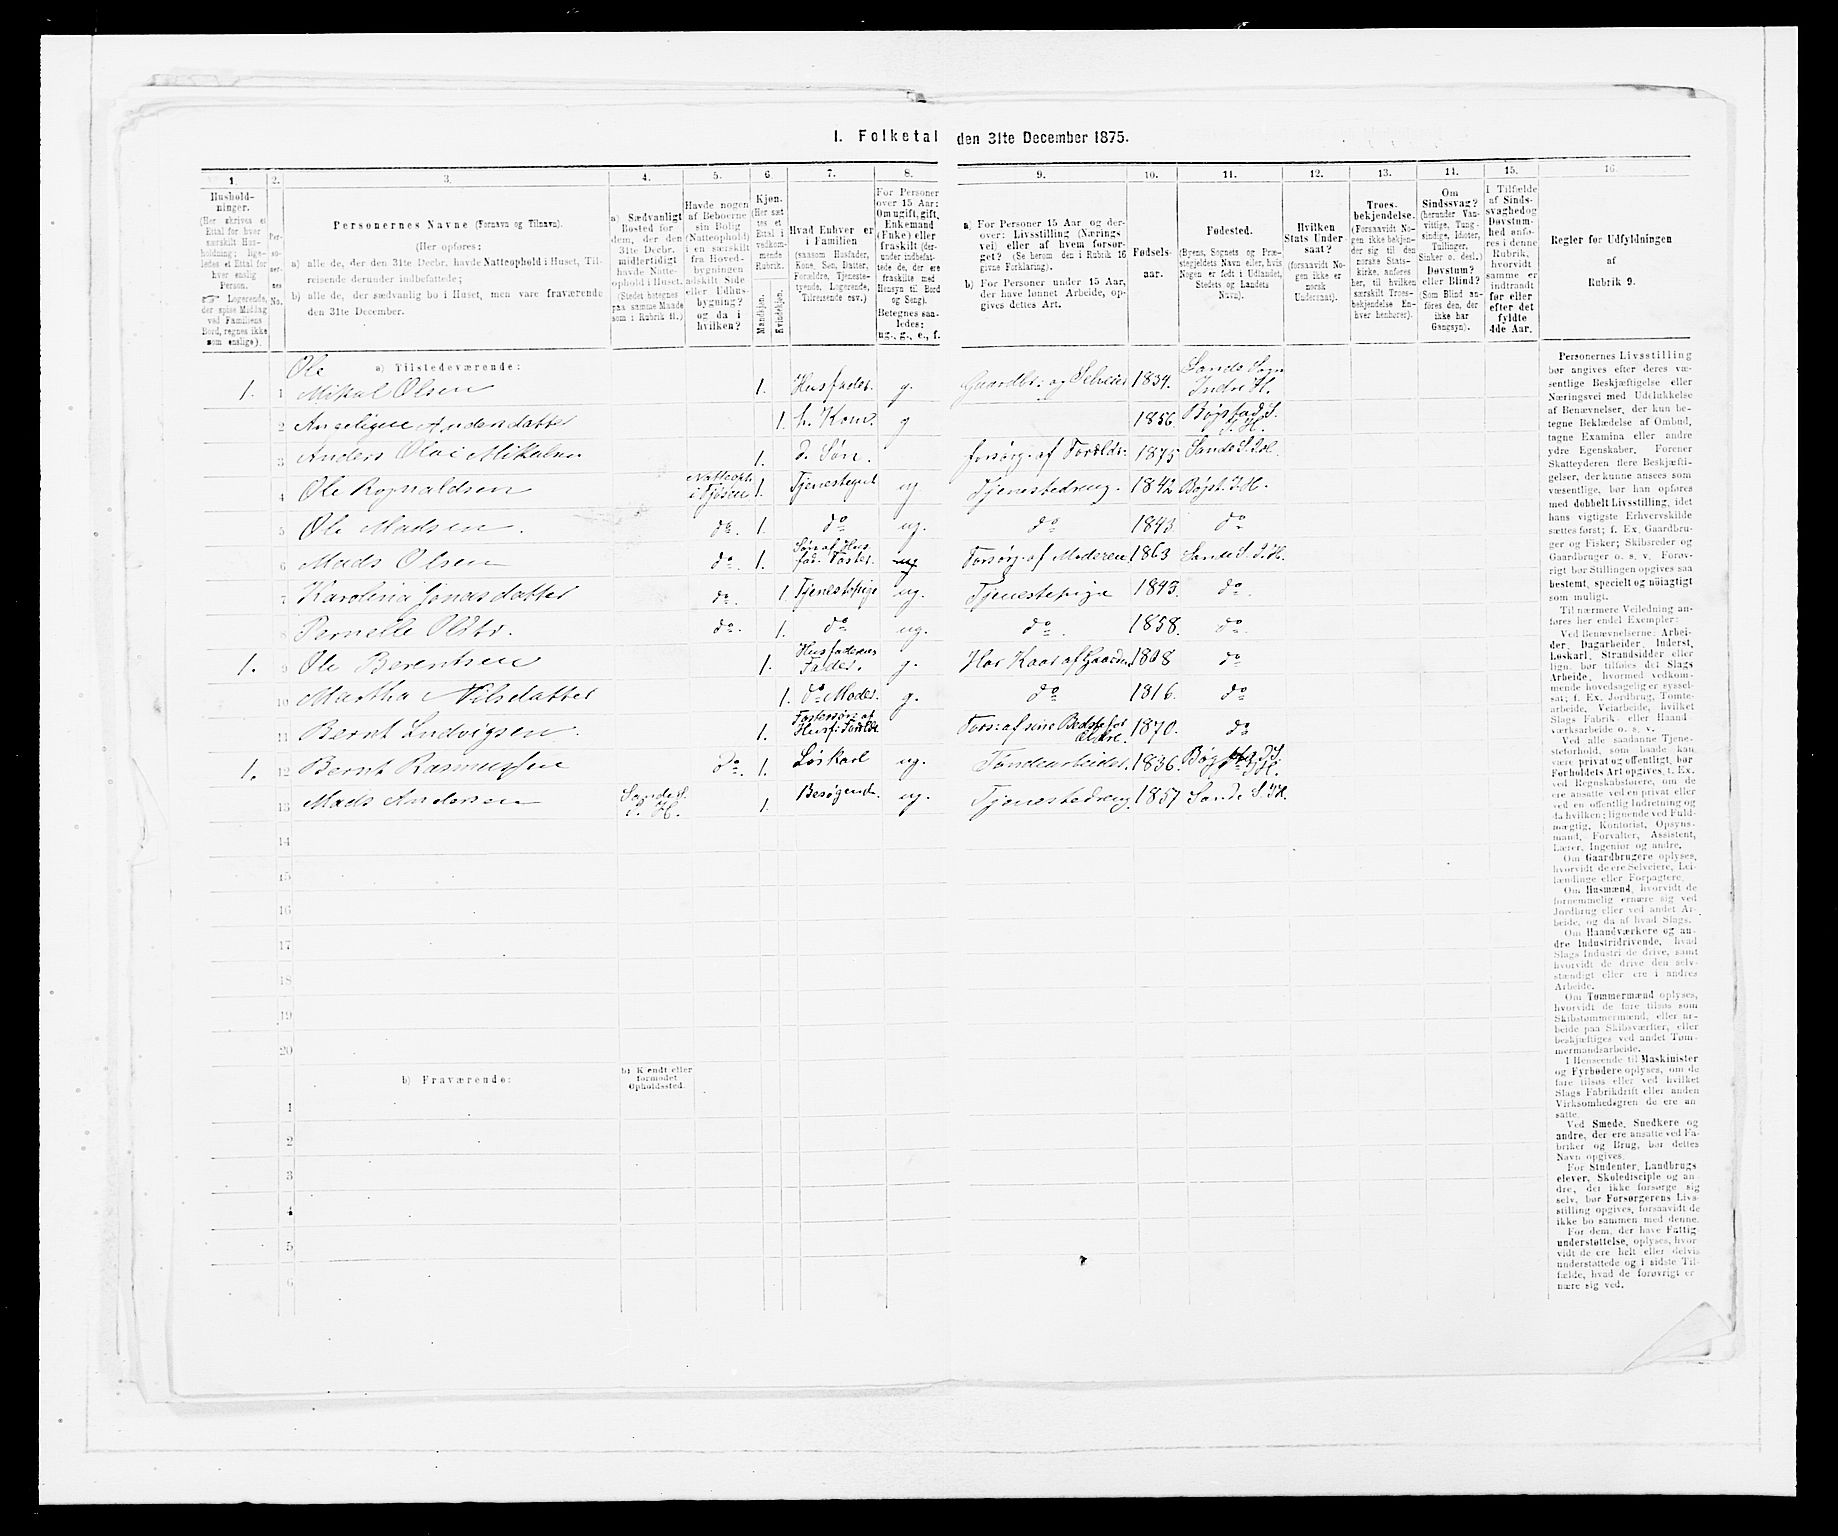 I. Folketal den 31te December 1875.
1. 2. 3. 4. 5. 6. 7. 8. 9. 10. 11. 12. 13. 14. 15. 16.
Husholdninger.
(Her skrives et Ettal for hver særskilt Husholdning; ligeledes et Ettal for hver enslig Person.
☞ Logerende, der spise Middag ved Familiens Bord, regnes ikke som enslige).
Personernes No.
Personernes Navne (Fornavn og Tilnavn).
(Her opføres:
a) alle de, der den 31te Decbr. havde Natteophold i Huset, Tilreisende derunder indbefattede;
b) alle de, der sædvanlig bo i Huset, men vare fraværende den 31te December.
a) Sædvanligt Bosted for dem, der den 31te Decbr. midlertidigt havde Natteophold i Huset.
(Stedet betegnes paa samme Maade som i Rubrik 11.)
Havde nogen af Beboerne sin Bolig (Natteophold) i en særskilt fra Hovedbygningen adskilt Side eller Udhusbygning? og da i hvilken?
Kjøn. (Her sættes et Ettal i vedkommende Rubrik.
Mandkjøn. Kvindekjøn.
Hvad Enhver er i Familien
(saasom Husfader, Kone, Søn, Datter, Forældre, Tjenestetyende, Logerende, Tilreisende osv.)
For Personer over 15 Aar: Om ugift, gift, Enkemand (Enke) eller fraskilt (derunder indbefattede de, der ere fraskilte med Hensyn til Bord og Seng).
Betegnes saaledes: ug., g., e., f.
a) For Personer 15 Aar og derover: Livsstilling (Næringsvei) eller af hvem forsørget? (Se herom den i Rubrik 16 givne Forklaring).
b) For Personer under 15 Aar, der have lønnet Arbeide, opgives dettes Art.
Fødselsaar.
Fødested.
(Byens, Sognets og Præstegjeldets Navn eller, hvis Nogen er født i Udlandet, Stedets og Landets Navn).
Hvilken Stats Undersaat?
(forsaavidt Nogen ikke er norsk Undersaat).
Troesbekjendelse.
(Forsaavidt Nogen ikke bekjender sig til den norske Statskirke, anføres her, til hvilken særskilt Troesbekjendelse Enhver henhører).
Om Sindssvag? (herunder Vanvittige, Tungsindige, Idioter, Tullinger, Sinker o. desl.). Døvstum? eller Blind? (Som Blind anføres den, der ikke har Gangsyn).
I Tilfælde af Sindssvaghed og Døvstumhed anføres i denne Rubrik, hvorvidt samme er indtraadt før eller efter det fyldte 4de Aar.
Regler for Udfyldningen af Rubrik 9.
a) Tilstedeværende:
1. 1 Ole Mikal Olsen 1. Husfader. g. Gaardbr: og Selveier 1834. Sande Sogn Indre H.
2 Andersdatter 1. h. Kone. g 1856. S. I. H.
3 Anders Olai Mikalsen 1. d. Søn. forsørg. af Foreldr: 1875 Sande S. I. H.
4 Ole Rognaldsen Natteoph. i 1. ug Tjenestedreng. 1842 I. H.
5 Ole Madsen. do. 1. do ug. do 1843 do
6 Mads Olsen do. 1. Søn af Hus ug Forsørg. af Moderen 1863 Sande S. I. H.
7 Karolina Jonasdatter do. 1. Tjenestepige ug. Tjenestepige 1843. do.
8 Pernelle Oldtr. do. 1. do ug. do. 1858. do.
1. 9 Ole Berentsen 1. Husfaderens Fader. g. Har Kaar af Gaarden 1808 do
10 Martha Nilsdatter 1. do Moder. g. do 1816. do
11 Bernt Ludvigsen. 1. Fostersøn af Husf: Fors: af sine 1870. do
1. 12 Bernt Rasmussen do. 1. Løskarl ug. Tøndearbeider. 1836.
13 Mads Andersen Sande S. I. H. 1. Besøgende. ug. Tjenestedreng 1857 Sande S. I. H.
14
15
16
17
18
19
20
b) Fraværende: b) Kjendt eller formodet Opholdssted.
1
2
3
4
5
6
Personernes Livsstilling bør angives efter deres væsentlige Beskjæftigelse eller Næringsvei med Udelukkelse af Benævnelser, der kun betegne Beklædelse af Ombud, tagne Examina eller andre ydre Egenskaber. Forener Skatteyderen flere Beskjæftigelser, der kunne ansees som væsentlige, bør han opføres med dobbelt Livsstilling, idet hans vigtigste Erhvervskilde sættes først; f. Ex. Gaardbruger og Fisker; Skibsreder og Gaardbruger o. s. v. Forøvrigt bør Stillingen opgives saa bestemt, specielt og nøiagtigt som muligt.
Til nærmere Veiledning anføres her endel Exempler:
Ved Benævnelserne: Arbeider, Dagarbeider, Inderst, Løskarl, Strandsidder eller lign. bør tilføies det Slags Arbeide, hvormed vedkommende hovedsagelig er sysselsat; f. Ex. Jordbrug, Tomtearbeide, Veiarbeide, hvilket Slags Fabrik- eller Haandværksarbeide o. s. v.
Ved alle saadanne Tjenesteforhold, som baade kan være privat og offentligt, bør Forholdets Art opgives, t. Ex. ved Regnskabsførere, om de ere ansatte ved en privat eller ved en offentlig Indretning og da hvilken; lignende ved Fuldmægtig, Kontorist, Opsynsmand, Forvalter, Assistent, Lærer, Ingeniør og andre.
Om Gaardbrugere oplyses, hvorvidt de ere Selveiere, Leilændinge eller Forpagtere.
Om Husmænd, hvorvidt de fornemmelig ernære sig ved Jordbrug eller ved andet Arbeide, og da af hvad Slags.
Om Haandværkere og andre Industridrivende, hvad Slags Industri de drive, samt hvorvidt de drive den selvstændigt eller ere i andres Arbeide.
Om Tømmermænd oplyses, hvorvidt de fare tilsøs som Skibstømmermænd, eller arbeide paa Skibsværfter, eller beskjæftiges ved andet Tømmermandsarbeide.
I Henseende til Maskinister og Fyrbødere oplyses, om de fare tilsøs eller ved hvilket Slags Fabrikdrift eller anden Virksomhedsgren de ere ansatte.
Ved Smede, Snedkere og andre, der ere ansatte ved Fabriker og Brug, bør dettes Navn opgives.
For Studenter, Landbrugselever, Skoledisciple og andre, der ikke forsørge sig selv, bør Forsørgerens Livsstilling opgives, forsaavidt de ikke bo sammen med denne.
For dem, der have Fattigunderstøttelse, oplyses, hvorvidt de ere helt eller delvis understøttede og i sidste Tilfælde, hvad de forøvrigt ernære sig ved.